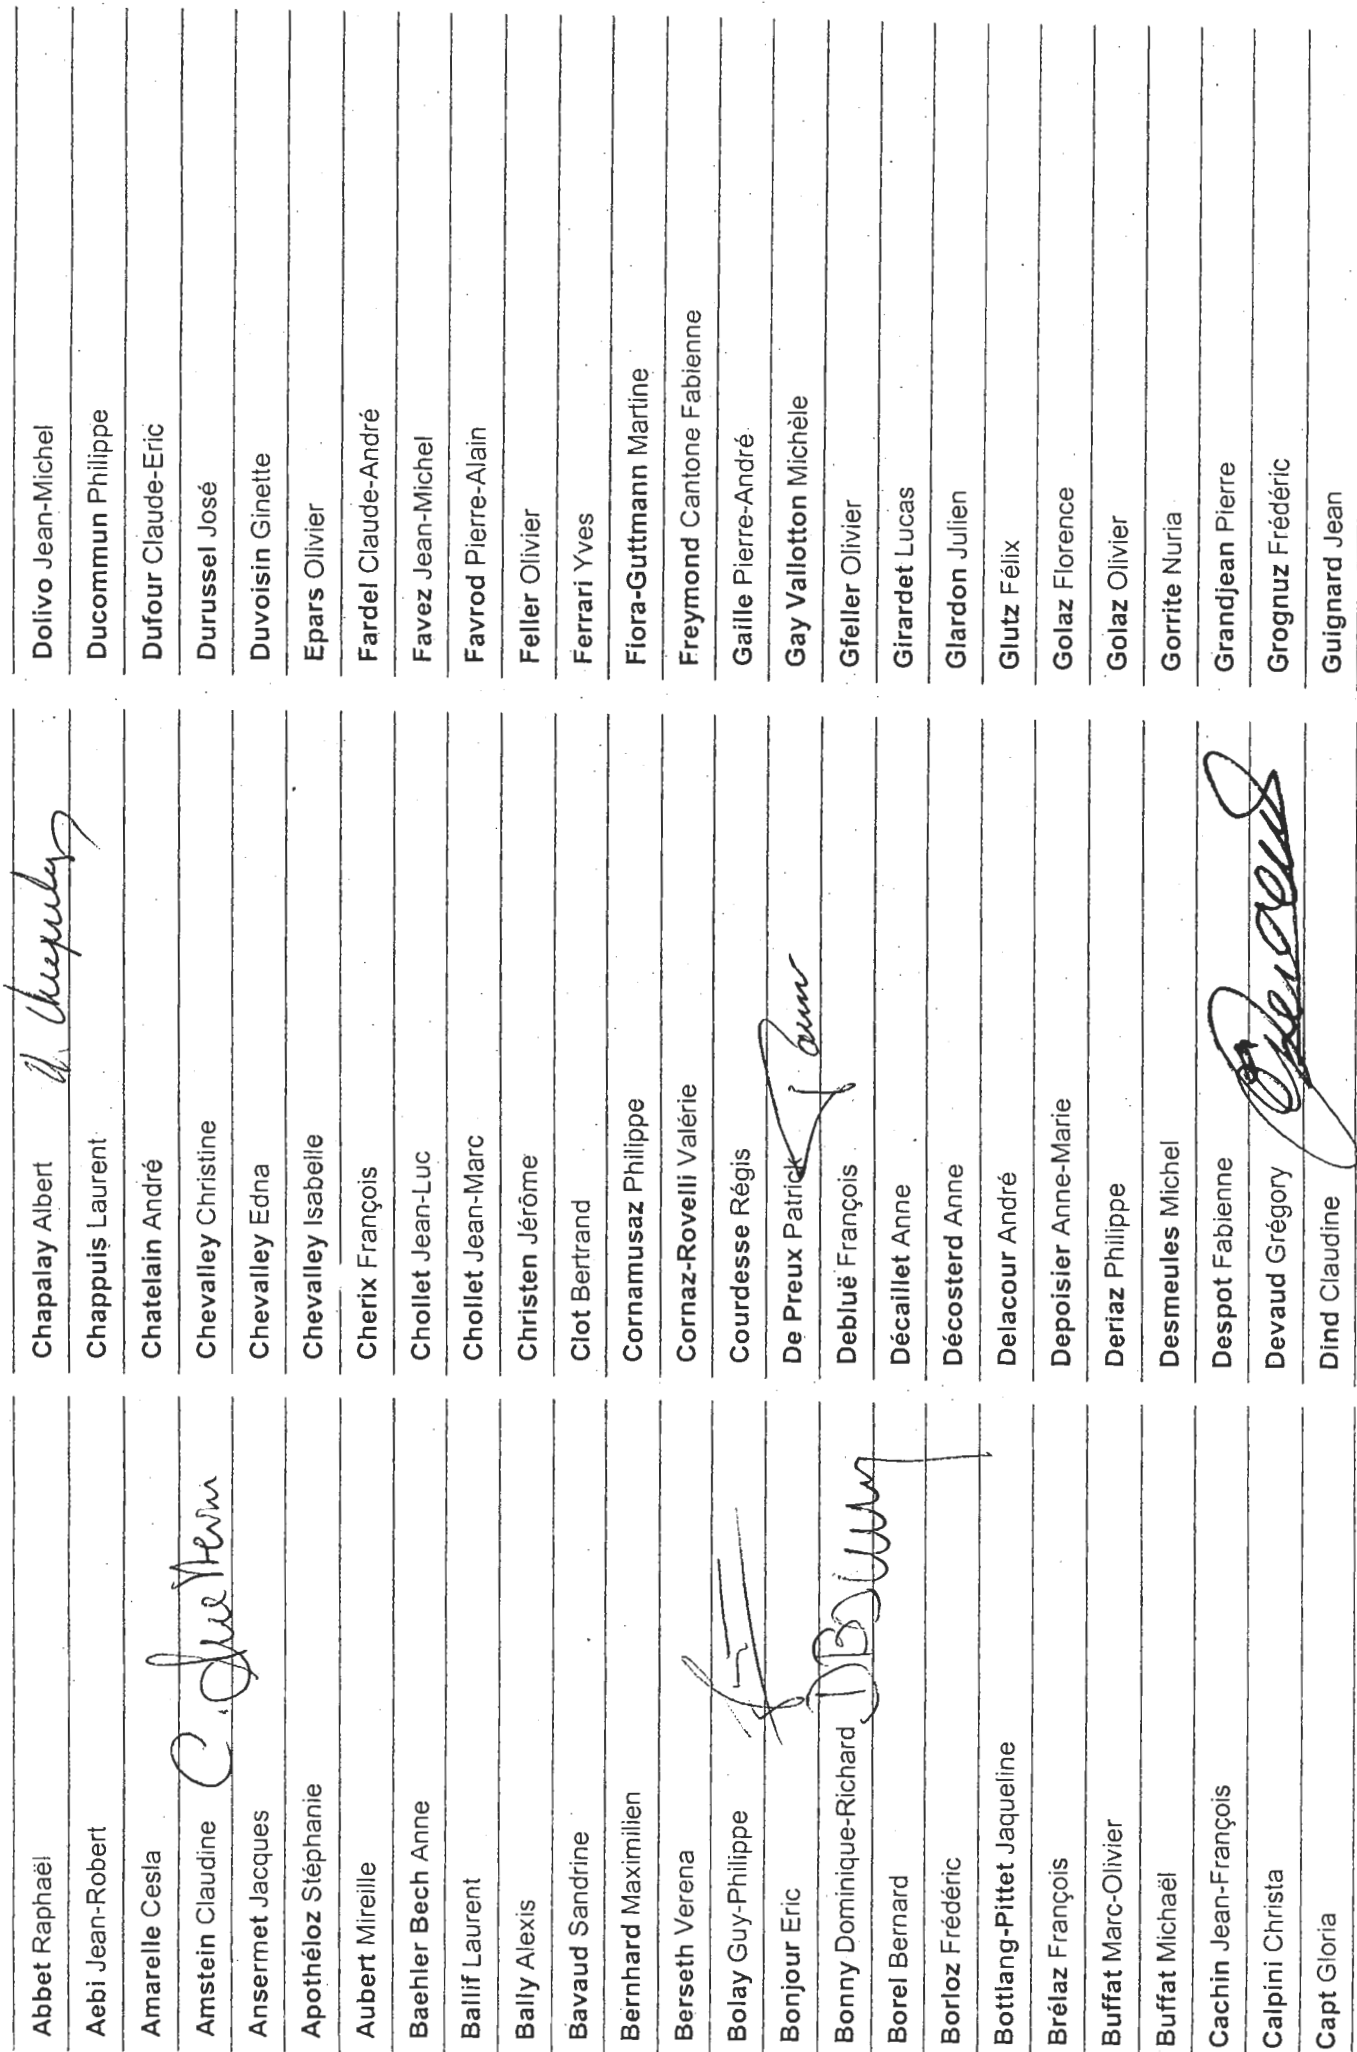 Abbet Raphaël
Aebi Jean-Robert
Amarelle Cesla
Amstein Claudine
Ansermet Jacques
Apothéloz Stéphanie
Aubert Mireille
Baehler Bech Anne
Ballif Laurent
Bally Alexis
Bavaud Sandrine
Bernhard Maximilien
Berseth Verena
Bolay Guy-Philippe
Bonjour Eric
Bonny Dominique-Richard
Borel Bernard
Borloz Frédéric
Bottlang-Pittet Jaqueline
Brélaz François
Buffat Marc-Olivier
Buffat Michaël
Cachin Jean-François
Calpini Christa
Capt Gloria
Chapalay Albert
Chappuis Laurent
Chatelain André
Chevalley Christine
Chevalley Edna
Chevalley Isabelle
Cherix François
Chollet Jean-Luc
Chollet Jean-Marc
Christen Jérôme
Clot Bertrand
Cornamusaz Philippe
Cornaz-Rovelli Valérie
Courdesse Régis
De Preux Patrick
Debluë François
Décaillet Anne
Décosterd Anne
Delacour André
Depoisier Anne-Marie
Deriaz Philippe
Desmeules Michel
Despot Fabienne
Devaud Grégory
Dind Claudine
Dolivo Jean-Michel
Ducommun Philippe
Dufour Claude-Eric
Durussel José
Duvoisin Ginette
Epars Olivier
Fardel Claude-André
Favez Jean-Michel
Favrod Pierre-Alain
Feller Olivier
Ferrari Yves
Fiora-Guttmann Martine
Freymond Cantone Fabienne
Gaille Pierre-André
Gay Vallotton Michèle
Gfeller Olivier
Girardet Lucas
Glardon Julien
Glutz Félix
Golaz Florence
Golaz Olivier
Gorrite Nuria
Grandjean Pierre
Grognuz Frédéric
Guignard Jean